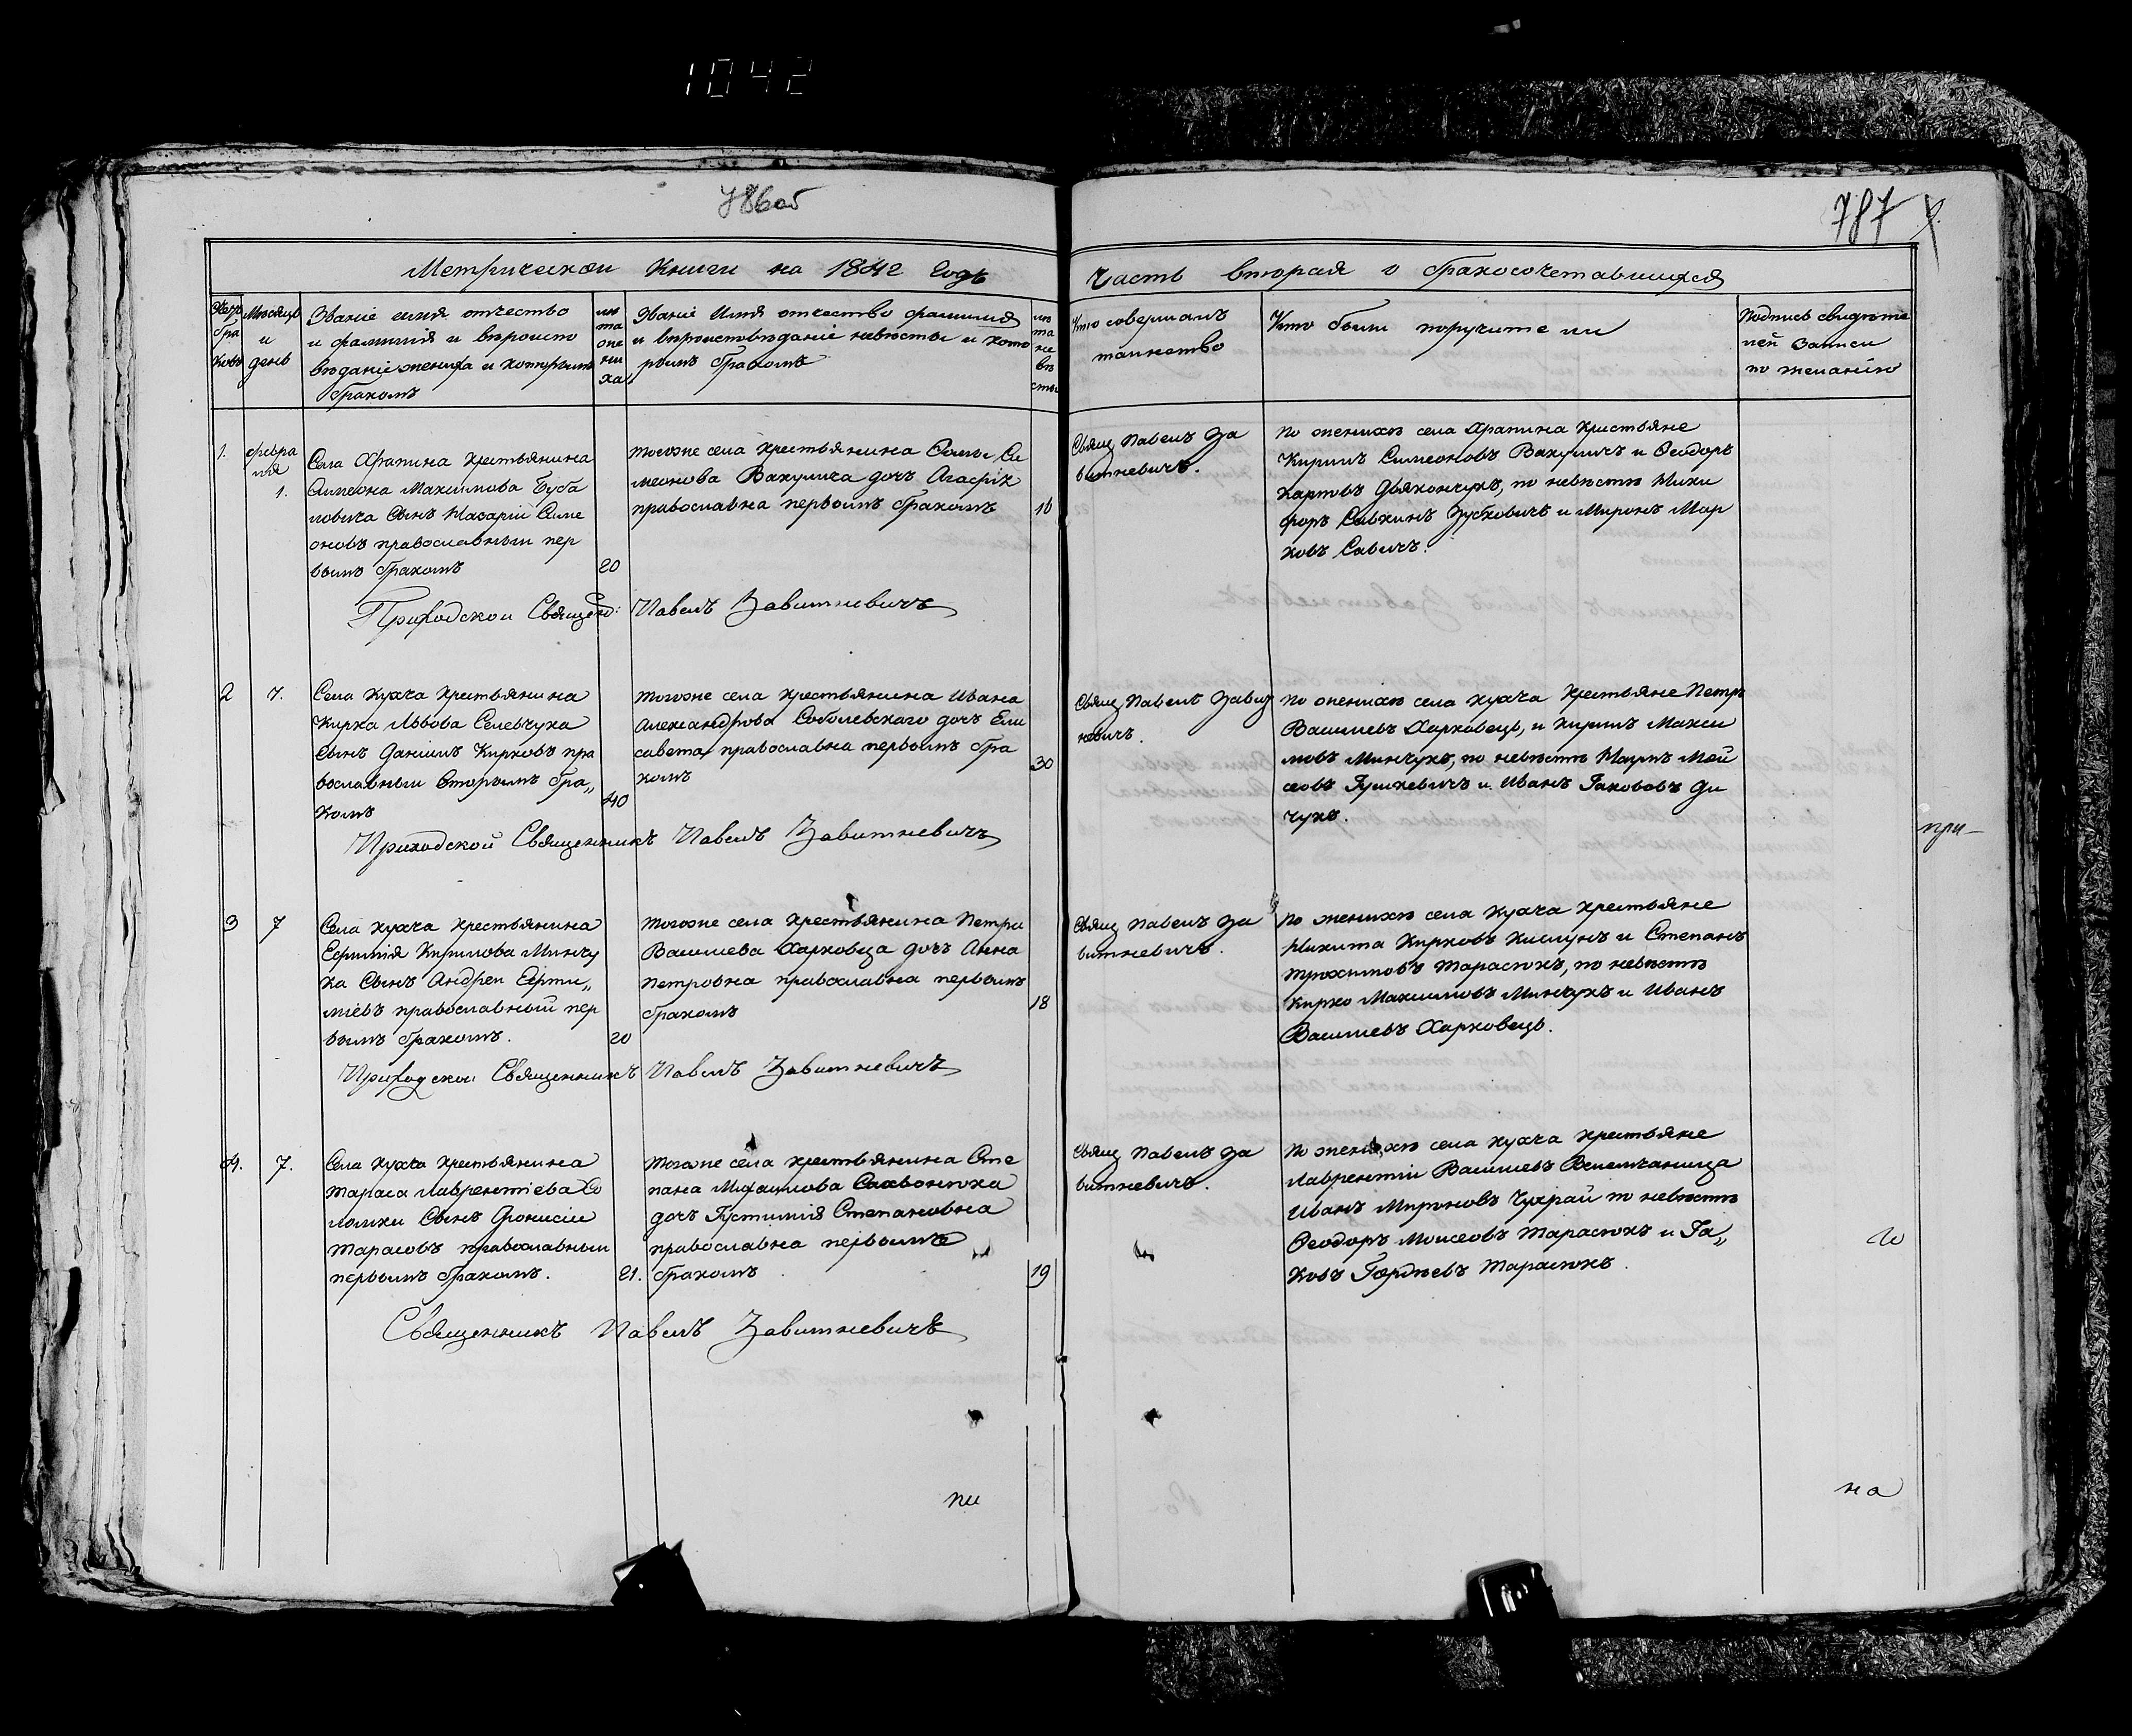 1042
786об
787
Метрической Книги на 1842 Годъ
Часть вторая о бракосочетавшихся
Счетъ браковъ
Мѣсяцъ и день
Званіе имя отчество
и фамилія и вѣроиспо
вѣданіе жениха и которымъ
бракомъ
лѣта жениха
Званіе Имя отчество фамилія
и вѣроисповѣданіе невѣсты и кото
рымъ бракомъ
лѣта невѣсты
Кто совершалъ
таинство
Кто были поручители
Подпись свидѣте
лей Записи
по желанію
1.
февра
ля
1.
Села Храпина крестьянина
Симеона Максимова Буба
ловича Сынъ Назарій Симе
оновъ православный пер
вымъ бракомъ
20
тогоже села крестьянина Фомы Си
меонова Вакулича дочь Агафія
православна первымъ бракомъ
16
Свящ Павелъ За
витневичъ.
По женихѣ села Храпина крестьяне
Кирилъ Симеоновъ Вакуличъ и Феодоръ
Карповъ Дьякончукъ, по невѣстѣ Ники
форъ Савкинъ Зубковичъ и Миронъ Мар
ковъ Савичъ.
Приходской Священ: Павелъ Завитневичъ
2
7.
Села Кухча крестьянина
Кирка Львова Селевчука
Сынъ Даніилъ Кирковъ пра
вославный вторымъ бра„
комъ
40
тогоже села крестьянина Ивана
Александрова Соболевскаго дочь Ели
савета православна первымъ бра
комъ
30
Свящ Павелъ Завит
невичъ.
По женихѣ села Кухча крестьяне Петръ
Васильевъ Харковецъ, и Кирилъ Макси
мовъ Минчукъ, по невѣстѣ Мой
сеовъ и Иванъ Іакововъ Ди
чукъ.
Приходской Священникъ Павелъ Завитневичъ
при-
3
7
Села Кухча крестьянина
Ефимія Кирилова Минчу
ка Сынъ Андрей
православный пер
вымъ бракомъ.
20
тогоже села крестьянина Петра
Васильева Харковца дочь Анна
Петровна православна первымъ
бракомъ
18
Свящ Павелъ За
витневичъ.
По женихѣ села Кухча крестьяне
Никита Кирковъ Кислунъ и Степанъ
Трохимовъ Тарасюкъ, по невѣстѣ
Кирко Максимовъ Минчукъ и Иванъ
Васильевъ Харковецъ.
Приходской Священникъ Павелъ Завитневичъ
4.
7.
Села Кухча крестьянина
Тараса Лаврентіева Со
ломки Сынъ Діонисій
Тарасовъ православный
первымъ бракомъ.
21.
тогоже села крестьянина Сте
пана Михаилова
дочь Іустинія Степановна
православна первымъ
бракомъ
19
Свящ Павелъ За
витневичъ.
По женихѣ села Кухча крестьяне
Лаврентій Васильевъ
Иванъ Мироновъ Чухрай по невѣстѣ
Феодоръ Моисеовъ Тарасюкъ и Іа„
ковъ Гордѣевъ Тарасюкъ.
Священникъ Павелъ Завитневичъ
на